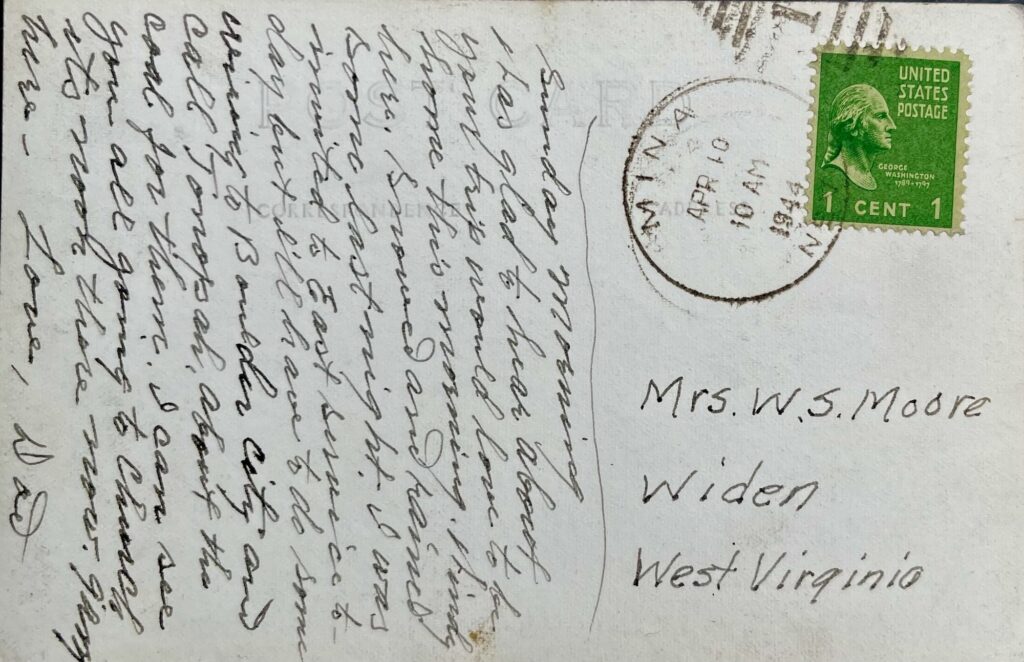 POST CARD
CORRESPONDENCE
ADDRESS
Sunday Morning
Was glad to hear about
Your trip would love to be
home this morning. Windy
here. Snowed and rained
some last night. I was
invited to East service to-
day but will have to do some
wiring to Boulder City and
call Tonopah, about the
coal for them. I can see
you all going to church
its noon there now. 9am
here - Love, Dad
MINA
APR 10
10 AM
1944
N
1
UNITED
STATES
POSTAGE
GEORGE
WASHINGTON
1789-1797
1 CENT 1
Mrs. W. S. Moore
Widen
West Virginia